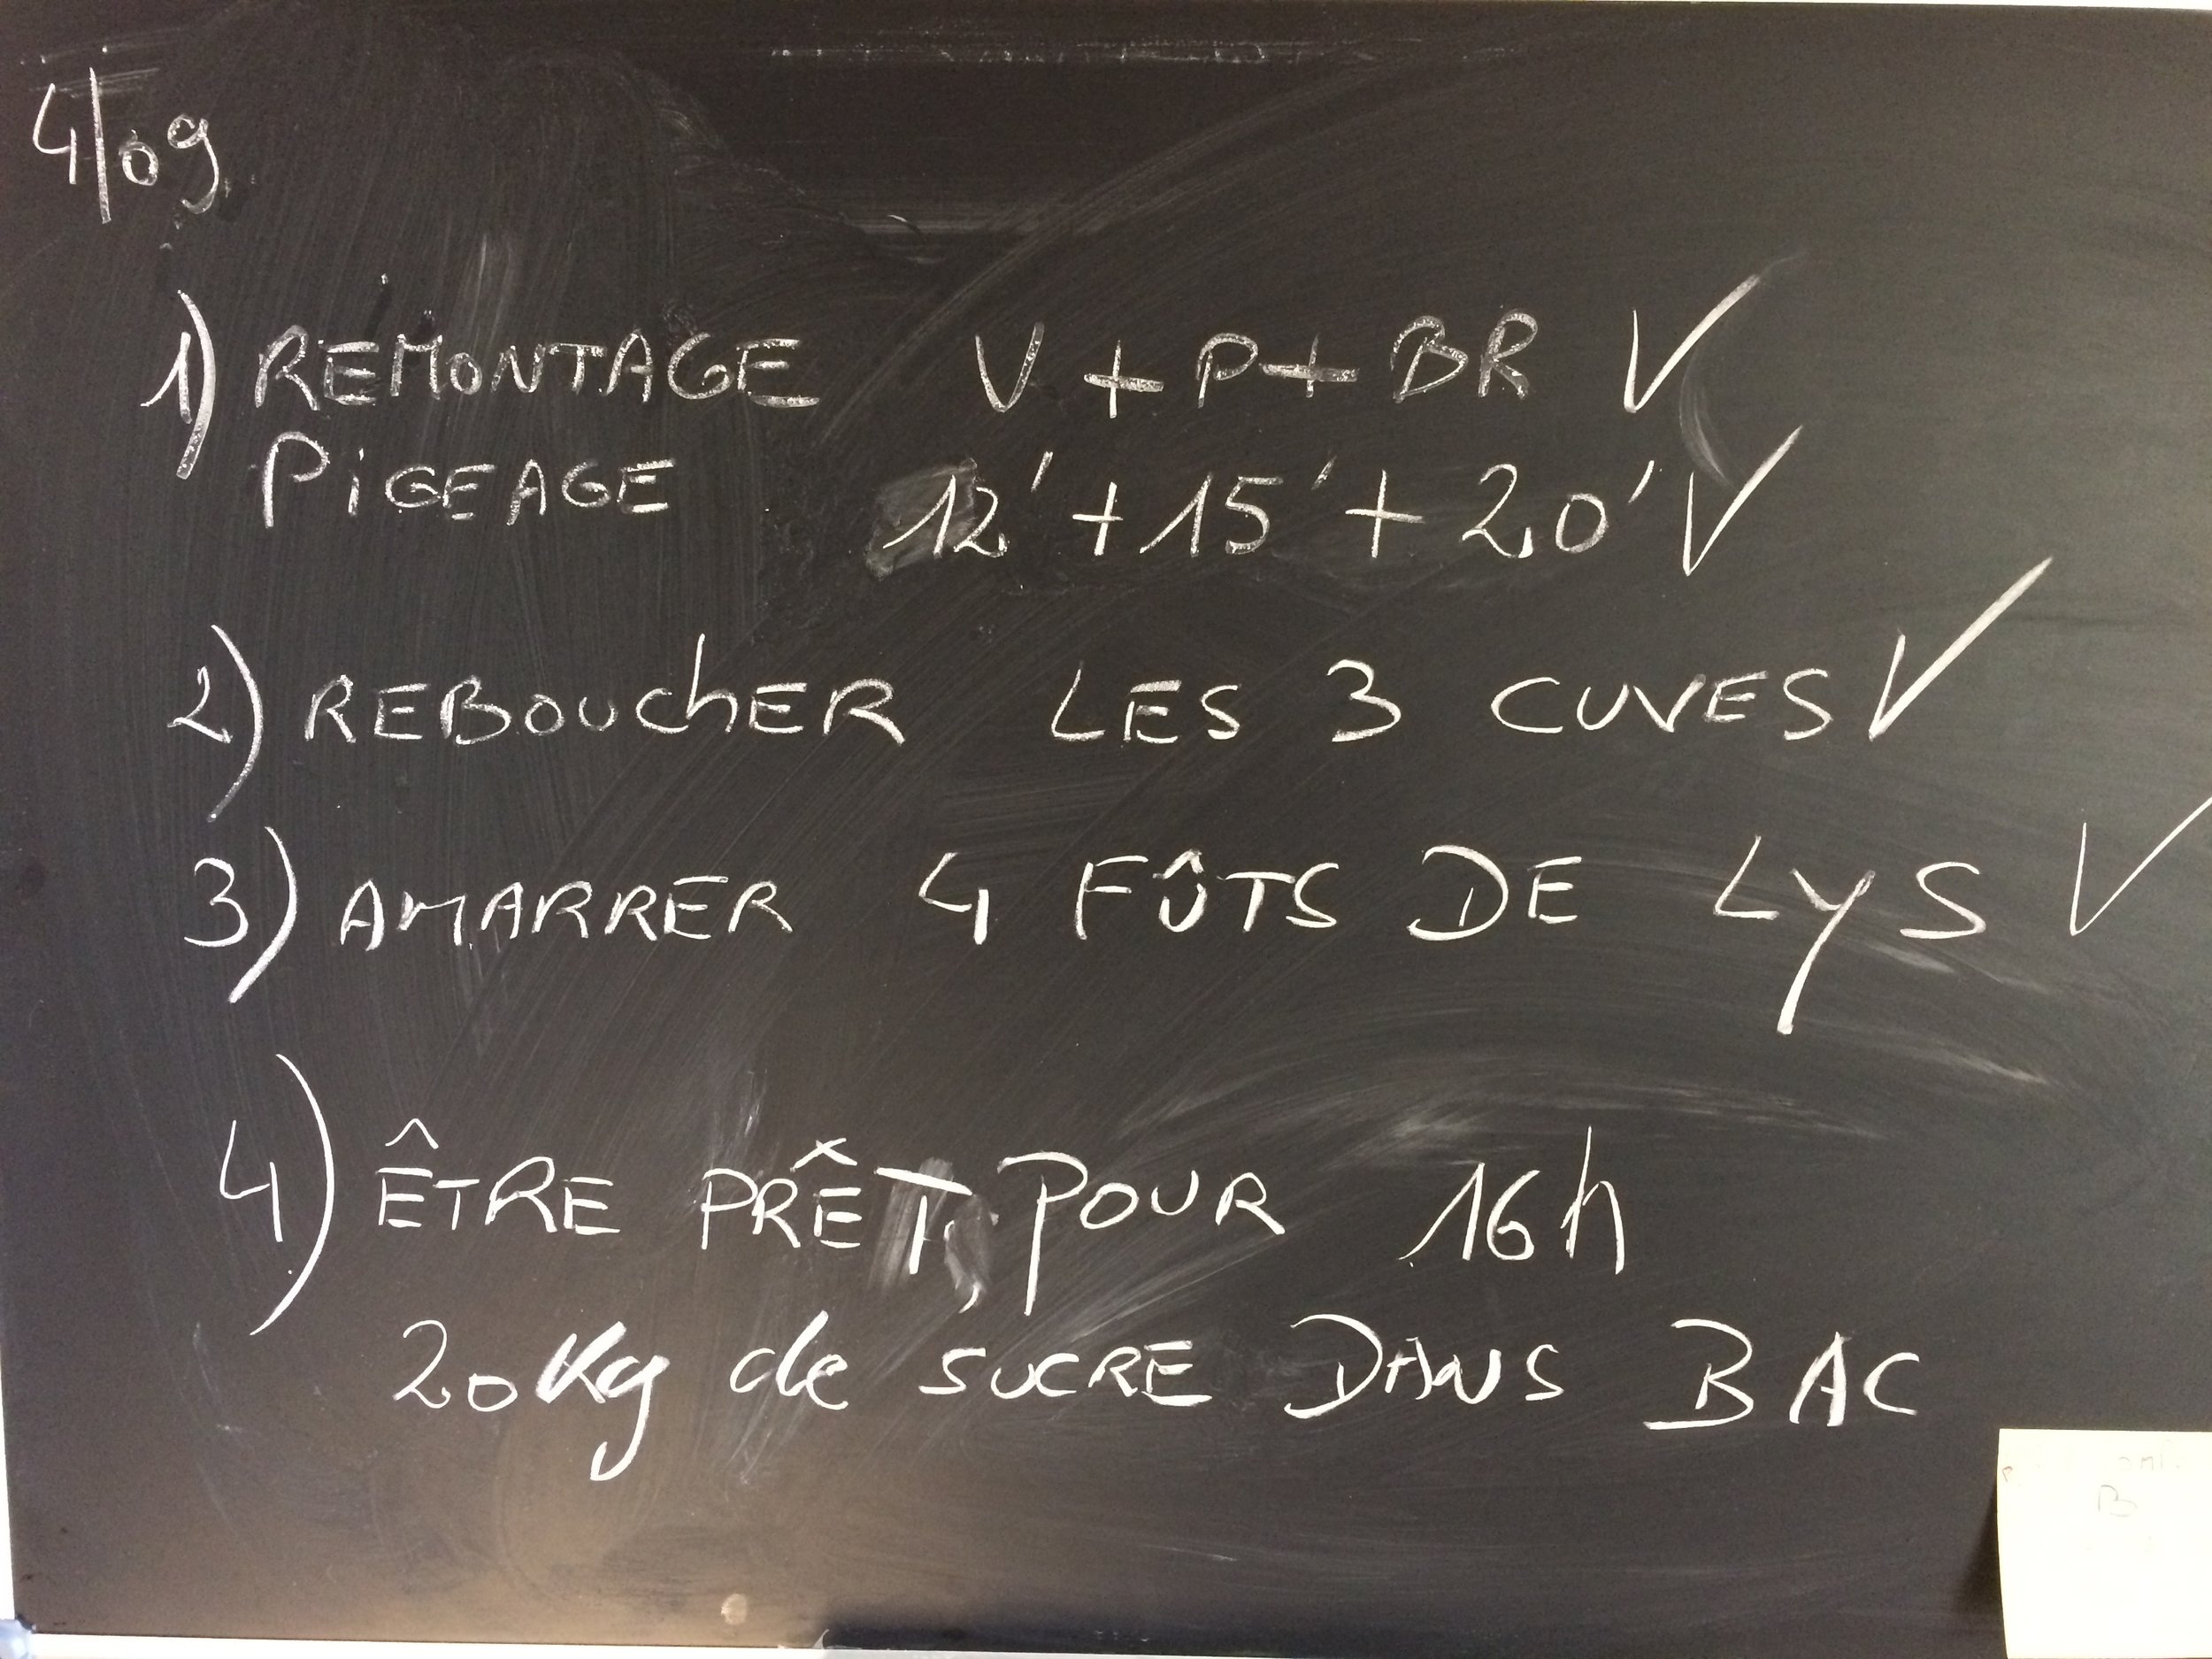 4/09
1) REMONTAGE V + P + BR ✓
PIGEAGE 12' + 15' + 20' ✓
2) REBOUCHER LES 3 CUVES ✓
3) AMARRER 4 FÛTS DE LYS ✓
4) ÊTRE PRÊT, POUR 16h
20Kg de SUCRE DANS BAC
B